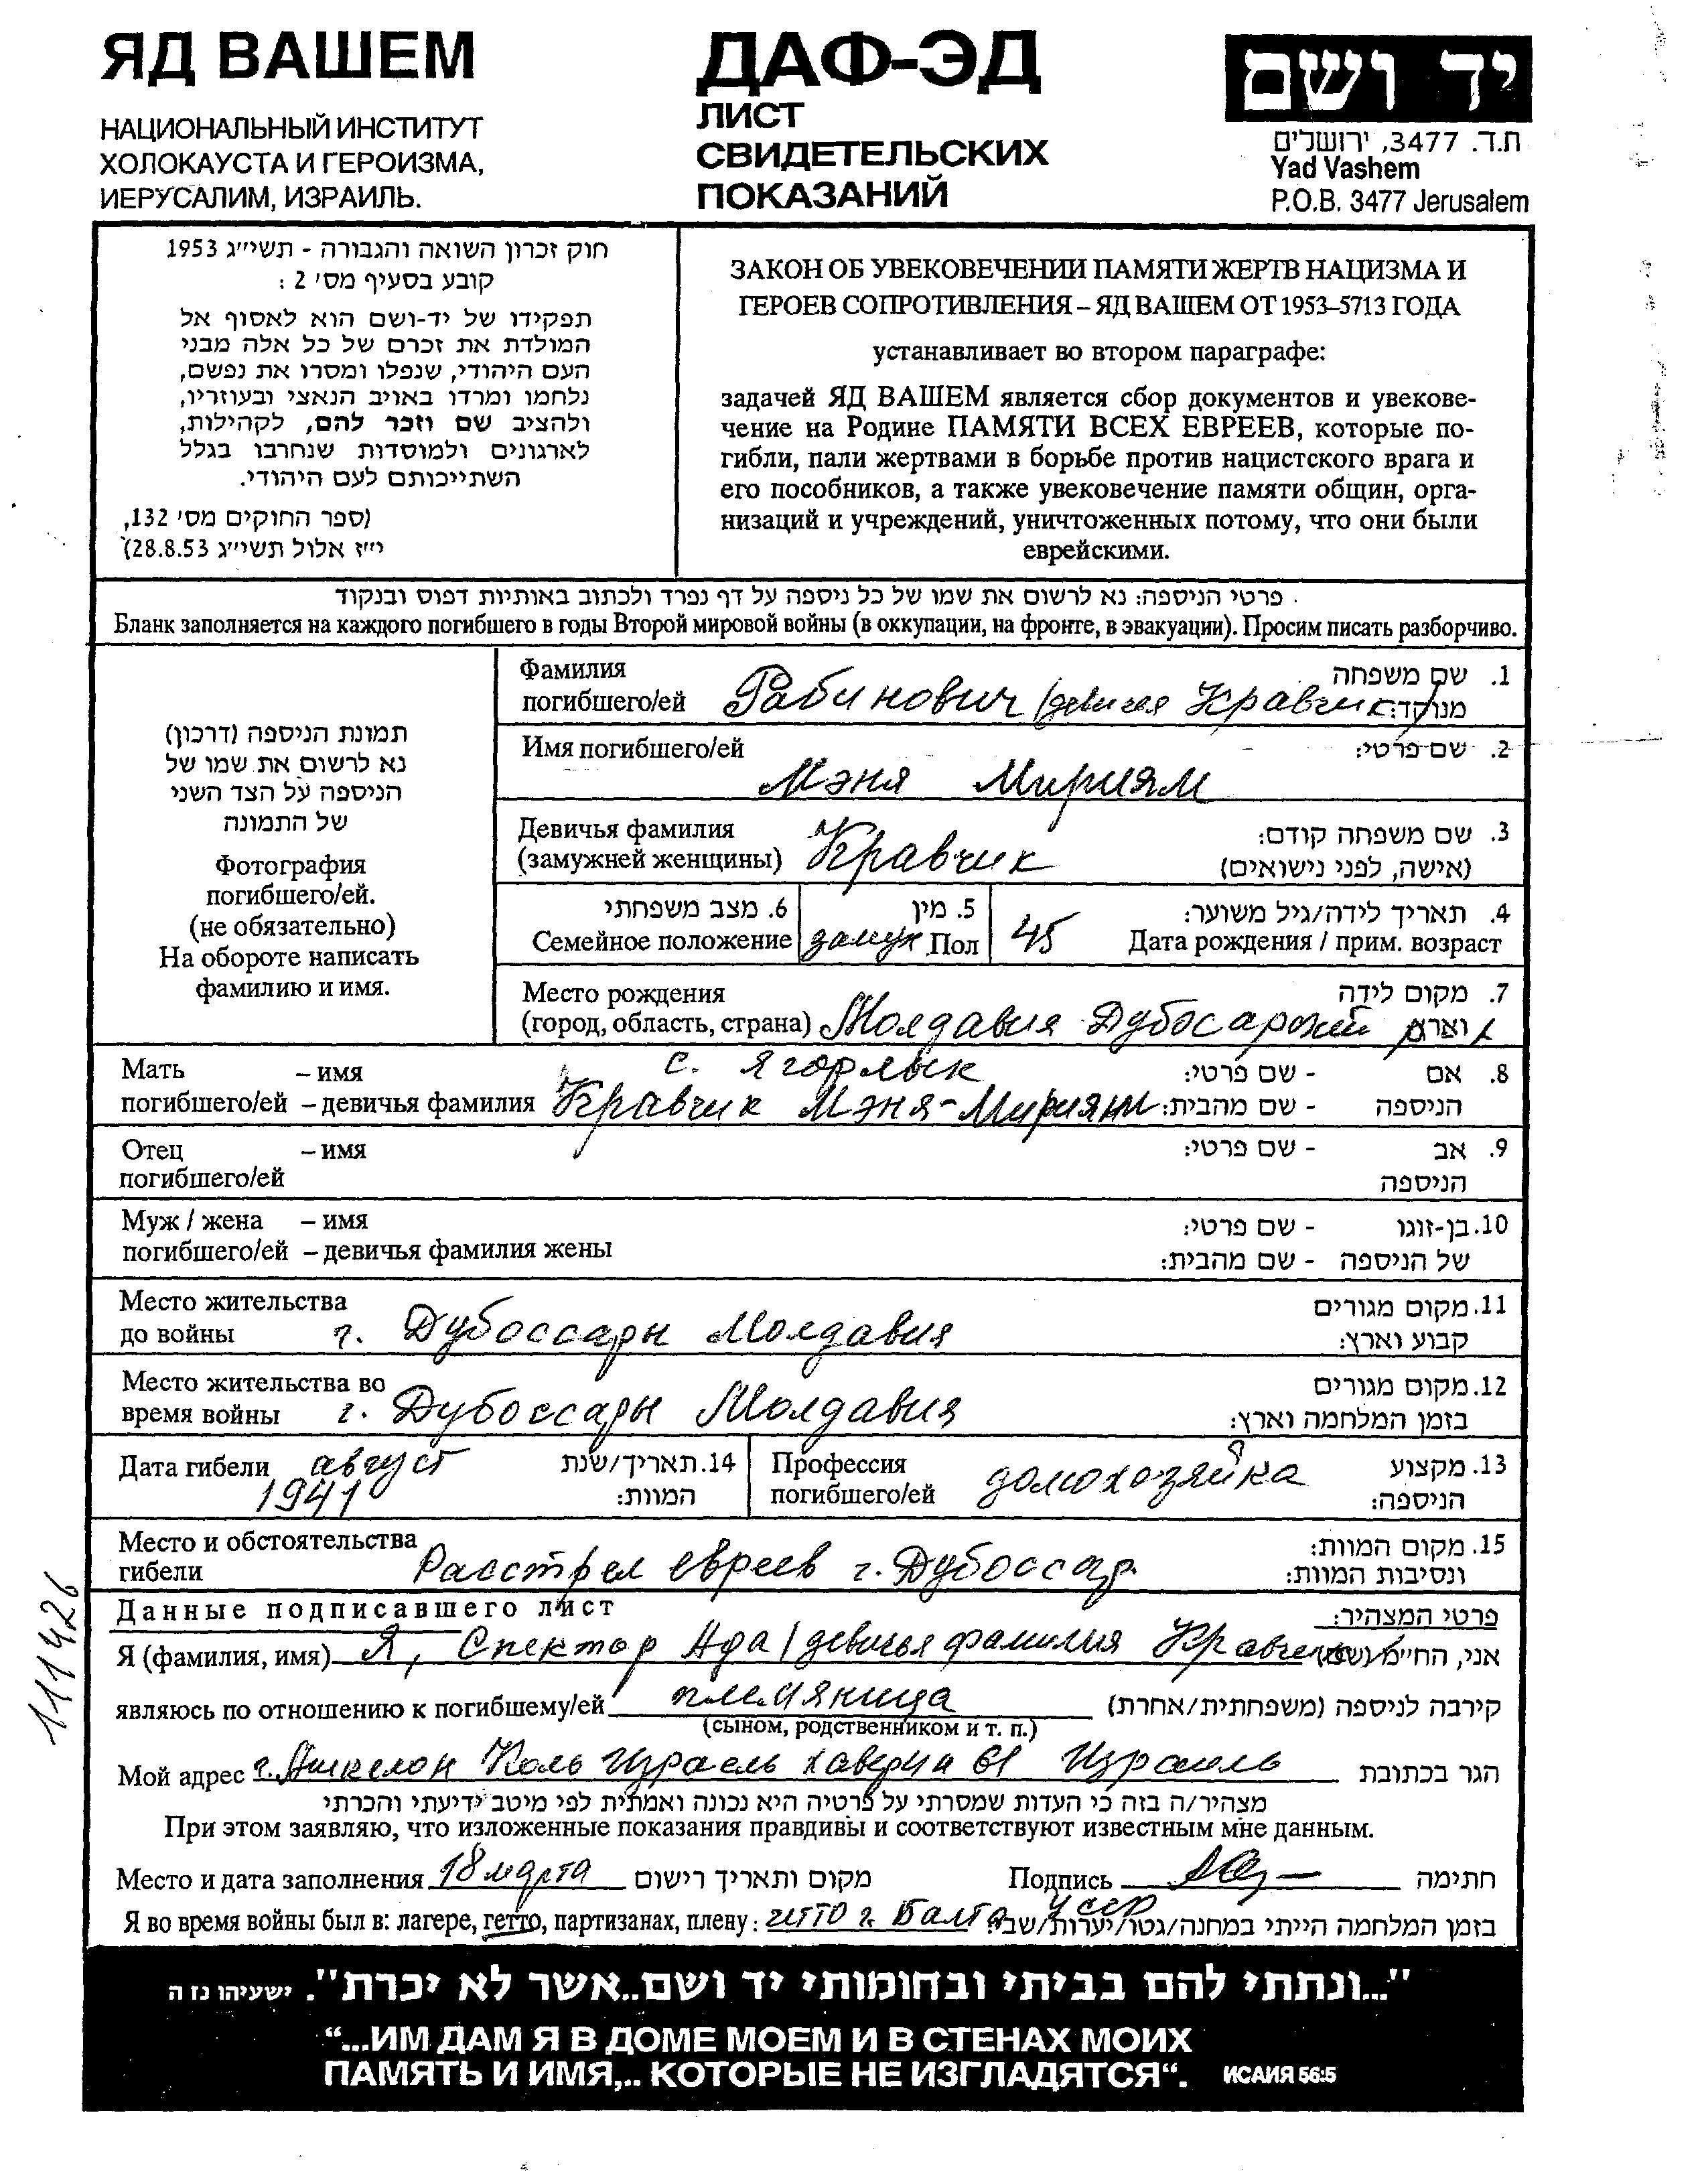 ЯД ВАШЕМ
НАЦИОНАЛЬНЫЙ ИНСТИТУТ
ХОЛОКАУСТА И ГЕРОИЗМА,
ИЕРУСАЛИМ, ИЗРАИЛЬ.
ДАФ-ЭД
ЛИСТ
СВИДЕТЕЛЬСКИХ
ПОКАЗАНИЙ
יד ושם
ת.ד. 3477, ירושלים
Yad Vashem
P.O.B. 3477 Jerusalem
חוק זכרון השואה והגבורה - תשי״ג 1953
קובע בסעיף מס׳ 2 :
תפקידו של יד-ושם הוא לאסוף אל
המולדת את זכרם של כל אלה מבני
העם היהודי, שנפלו ומסרו את נפשם,
נלחמו ומרדו באויב הנאצי ובעוזריו,
ולהציב שם וזכר להם, לקהילות,
לארגונים ולמוסדות שנחרבו בגלל
השתייכותם לעם היהודי.
(ספר החוקים מס׳ 132,
י״ז אלול תשי״ג 28.8.53)
ЗАКОН ОБ УВЕКОВЕЧЕНИИ ПАМЯТИ ЖЕРТВ НАЦИЗМА И
ГЕРОЕВ СОПРОТИВЛЕНИЯ – ЯД ВАШЕМ ОТ 1953–5713 ГОДА
устанавливает во втором параграфе:
задачей ЯД ВАШЕМ является сбор документов и увекове-
чение на Родине ПАМЯТИ ВСЕХ ЕВРЕЕВ, которые по-
гибли, пали жертвами в борьбе против нацистского врага и
его пособников, а также увековечение памяти общин, орга-
низаций и учреждений, уничтоженных потому, что они были
еврейскими.
פרטי הניספה: נא לרשום את שמו של כל ניספה על דף נפרד ולכתוב באותיות דפוס ובנקוד
Бланк заполняется на каждого погибшего в годы Второй мировой войны (в оккупации, на фронте, в эвакуации). Просим писать разборчиво.
תמונת הניספה (דרכון)
נא לרשום את שמו של
הניספה על הצד השני
של התמונה
Фотография
погибшего/ей.
(не обязательно)
На обороте написать
фамилию и имя.
Фамилия 1. שם משפחה
погибшего/ей Рабинович (девичья Кравчик) מנוקד:
Имя погибшего/ей 2. שם פרטי:
Мэня Мириям
Девичья фамилия 3. שם משפחה קודם:
(замужней женщины) Кравчик (אישה, לפני נישואים)
6. מצב משפחתי 5. מין 4. תאריך לידה/גיל משוער:
Семейное положение замуж Пол 45 Дата рождения / прим. возраст
Место рождения 7. מקום לידה
(город, область, страна) Молдавия Дубосарский וארץ
с. Ягорлык
Мать – имя 8. אם - שם פרטי:
погибшего/ей – девичья фамилия Кравчик Мэня-Мириям הניספה - שם מהבית:
Отец – имя 9. אב - שם פרטי:
погибшего/ей הניספה
Муж / жена – имя 10. בן-זוגו - שם פרטי:
погибшего/ей – девичья фамилия жены של הניספה - שם מהבית:
Место жительства 11. מקום מגורים
до войны г. Дубоссары Молдавия קבוע וארץ:
Место жительства во 12. מקום מגורים
время войны г. Дубоссары Молдавия בזמן המלחמה וארץ:
Дата гибели август 14. תאריך/שנת Профессия 13. מקצוע
1941 המוות: погибшего/ей домохозяйка הניספה:
Место и обстоятельства 15. מקום המוות:
гибели Расстрел евреев г. Дубоссар ונסיבות המוות:
Данные подписавшего лист פרטי המצהיר:
Я (фамилия, имя) Я, Спектор Ада (девичья фамилия Кравчик) אני, הח״מ
являюсь по отношению к погибшему/ей племяница קירבה לניספה (משפחתית/אחרת)
(сыном, родственником и т. п.)
Мой адрес г. Ашкелон Коль Израель хаверим 61 Израиль הגר בכתובת
מצהיר/ה בזה כי העדות שמסרתי על פרטיה היא נכונה ואמתית לפי מיטב ידיעתי והכרתי
При этом заявляю, что изложенные показания правдивы и соответствуют известным мне данным.
Место и дата заполнения 18 марта מקום ותאריך רישום Подпись חתימה
Я во время войны был в: лагере, гетто, партизанах, плену: гетто г. Балта УССР בזמן המלחמה הייתי במחנה/גטו/יערות/שבי:
111426
"...ונתתי להם בביתי ובחומותי יד ושם..אשר לא יכרת". ישעיהו נז ה
“...ИМ ДАМ Я В ДОМЕ МОЕМ И В СТЕНАХ МОИХ
ПАМЯТЬ И ИМЯ,.. КОТОРЫЕ НЕ ИЗГЛАДЯТСЯ“. ИСАИЯ 56:5